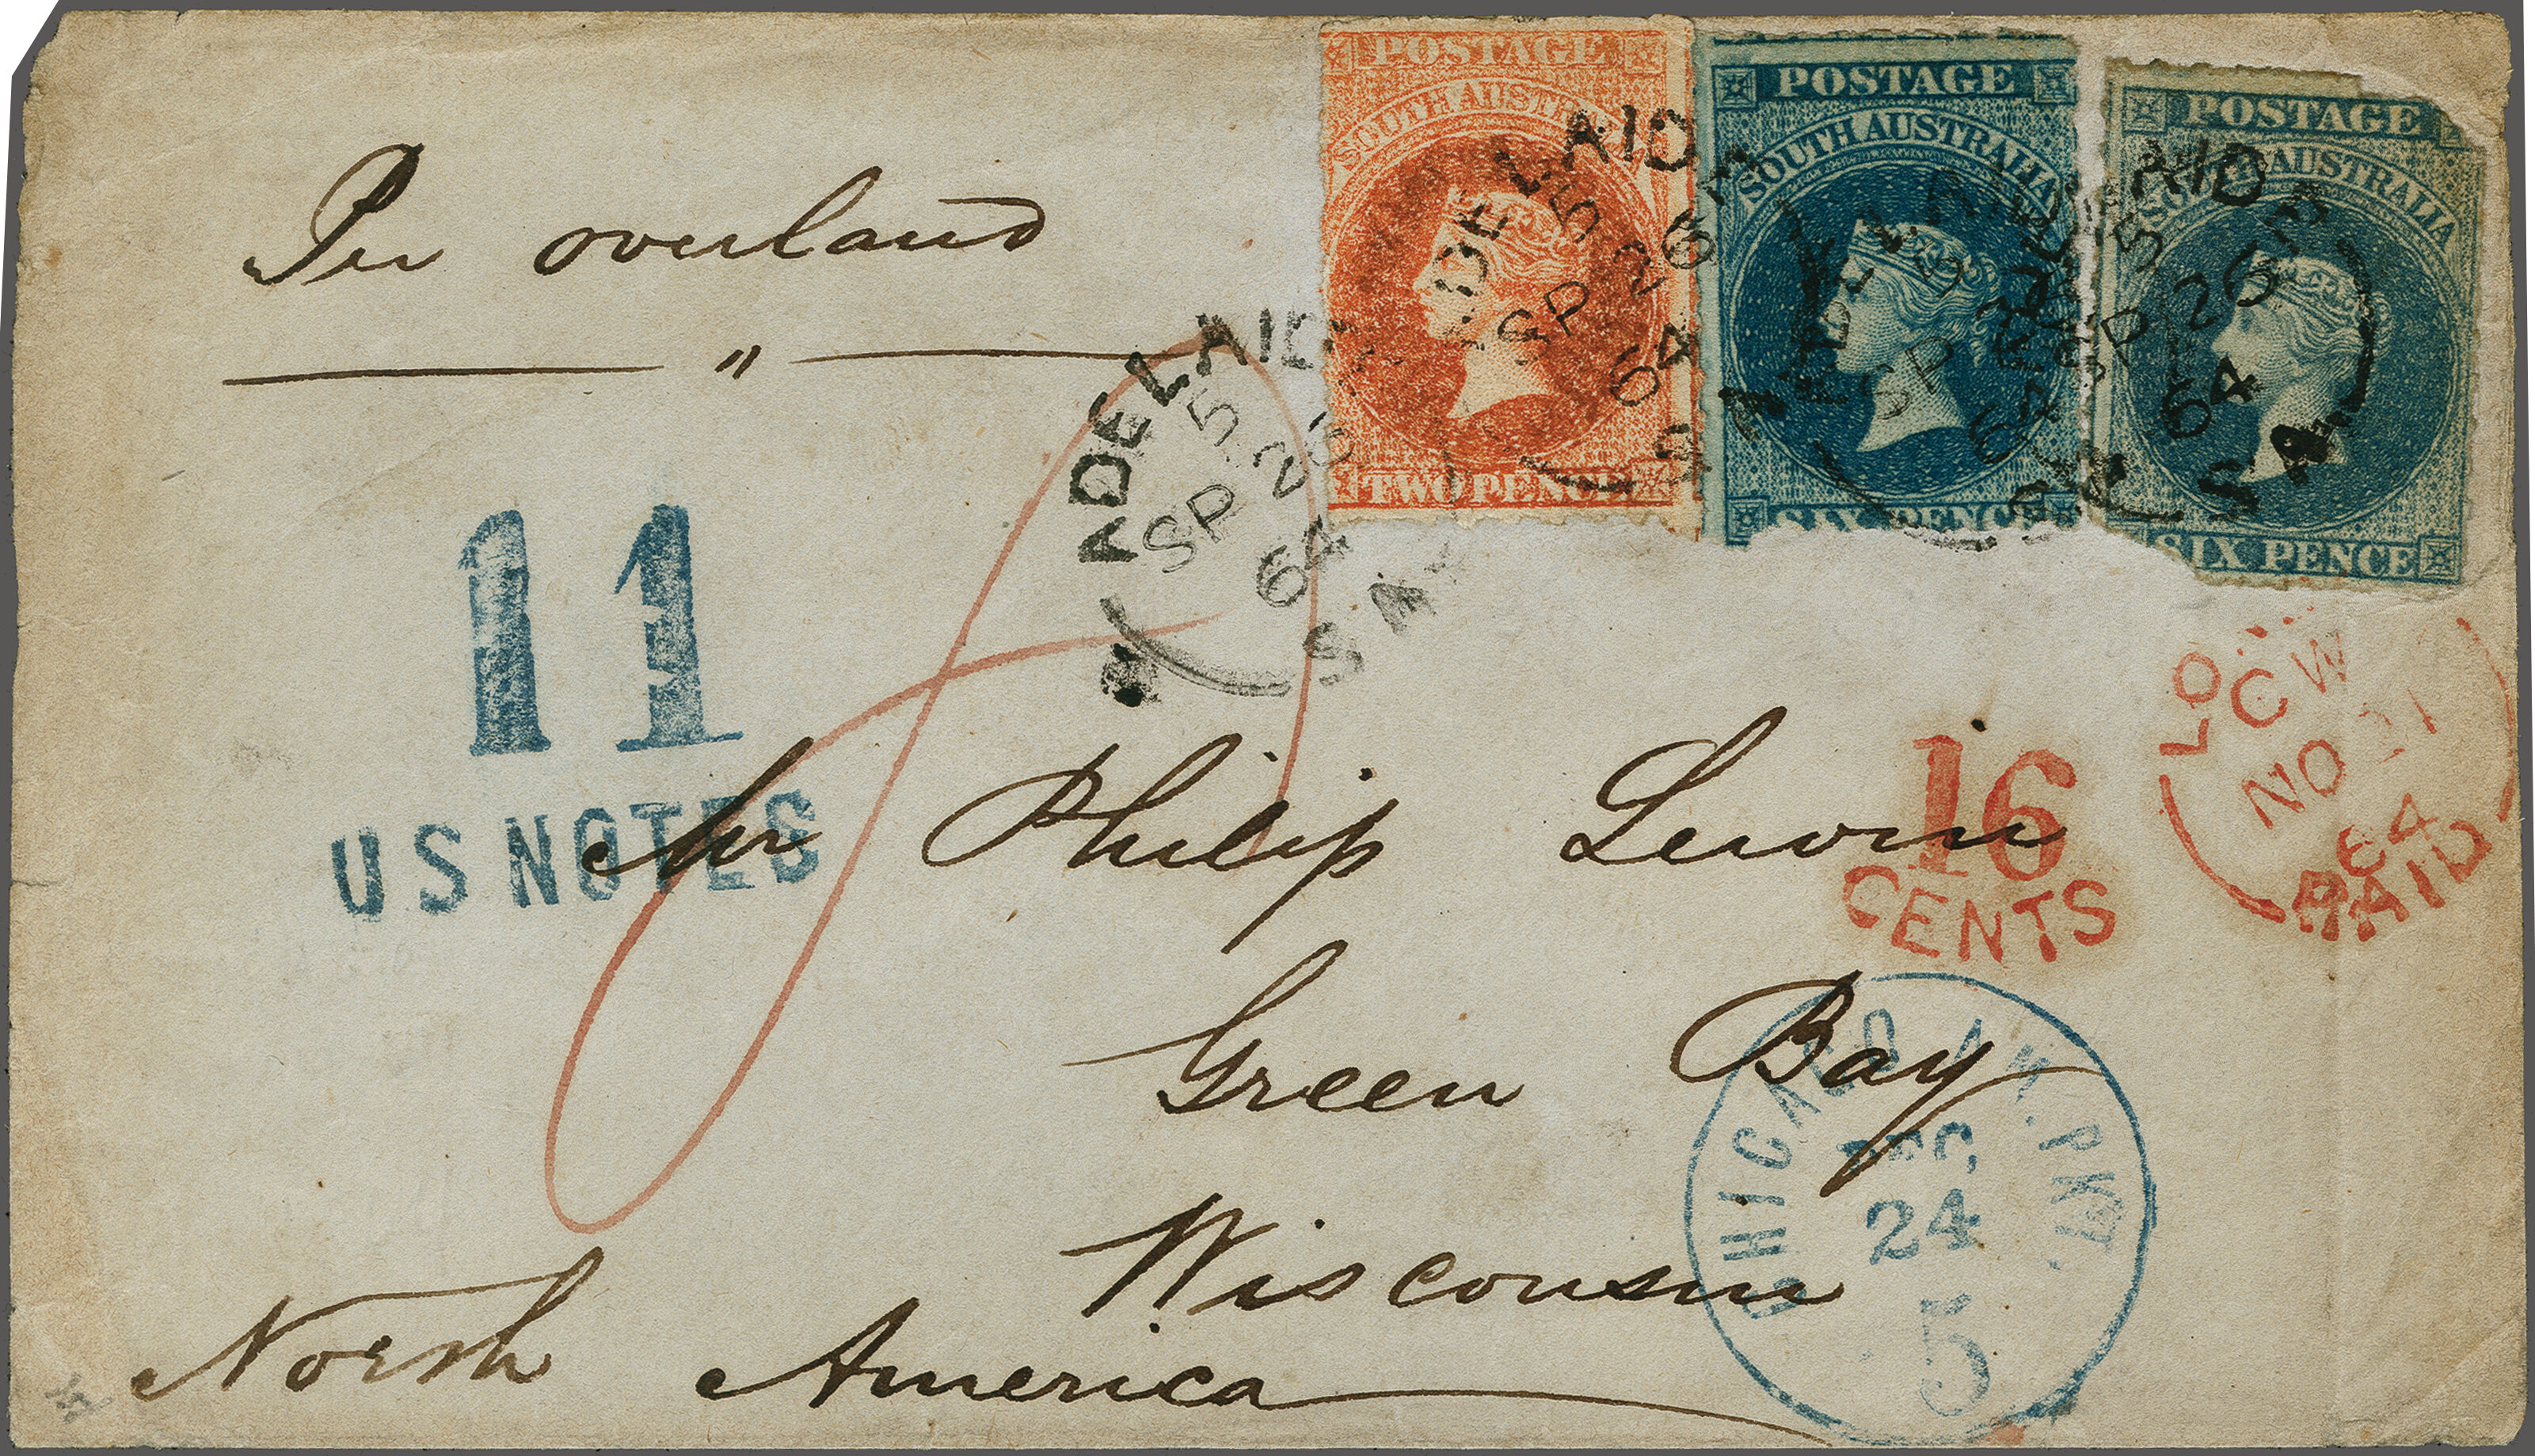 POSTAGE
SOUTH AUSTRALIA
TWO PENCE
POSTAGE
SOUTH AUSTRALIA
SIX PENCE
POSTAGE
SOUTH AUSTRALIA
SIX PENCE
Per overland
"
ADELAIDE
5
SP 26
64
S A
ADELAIDE
5
SP 26
64
S A
ADELAIDE
5
SP 26
64
S A
ADELAIDE
5
SP 26
64
S A
11
U S NOTES
LON
CW
NO 21
64
PAID
16
CENTS
Mr Philip Lewin
Green Bay
Wisconsin
North America
CHICAGO AM. PKT.
DEC
24
5